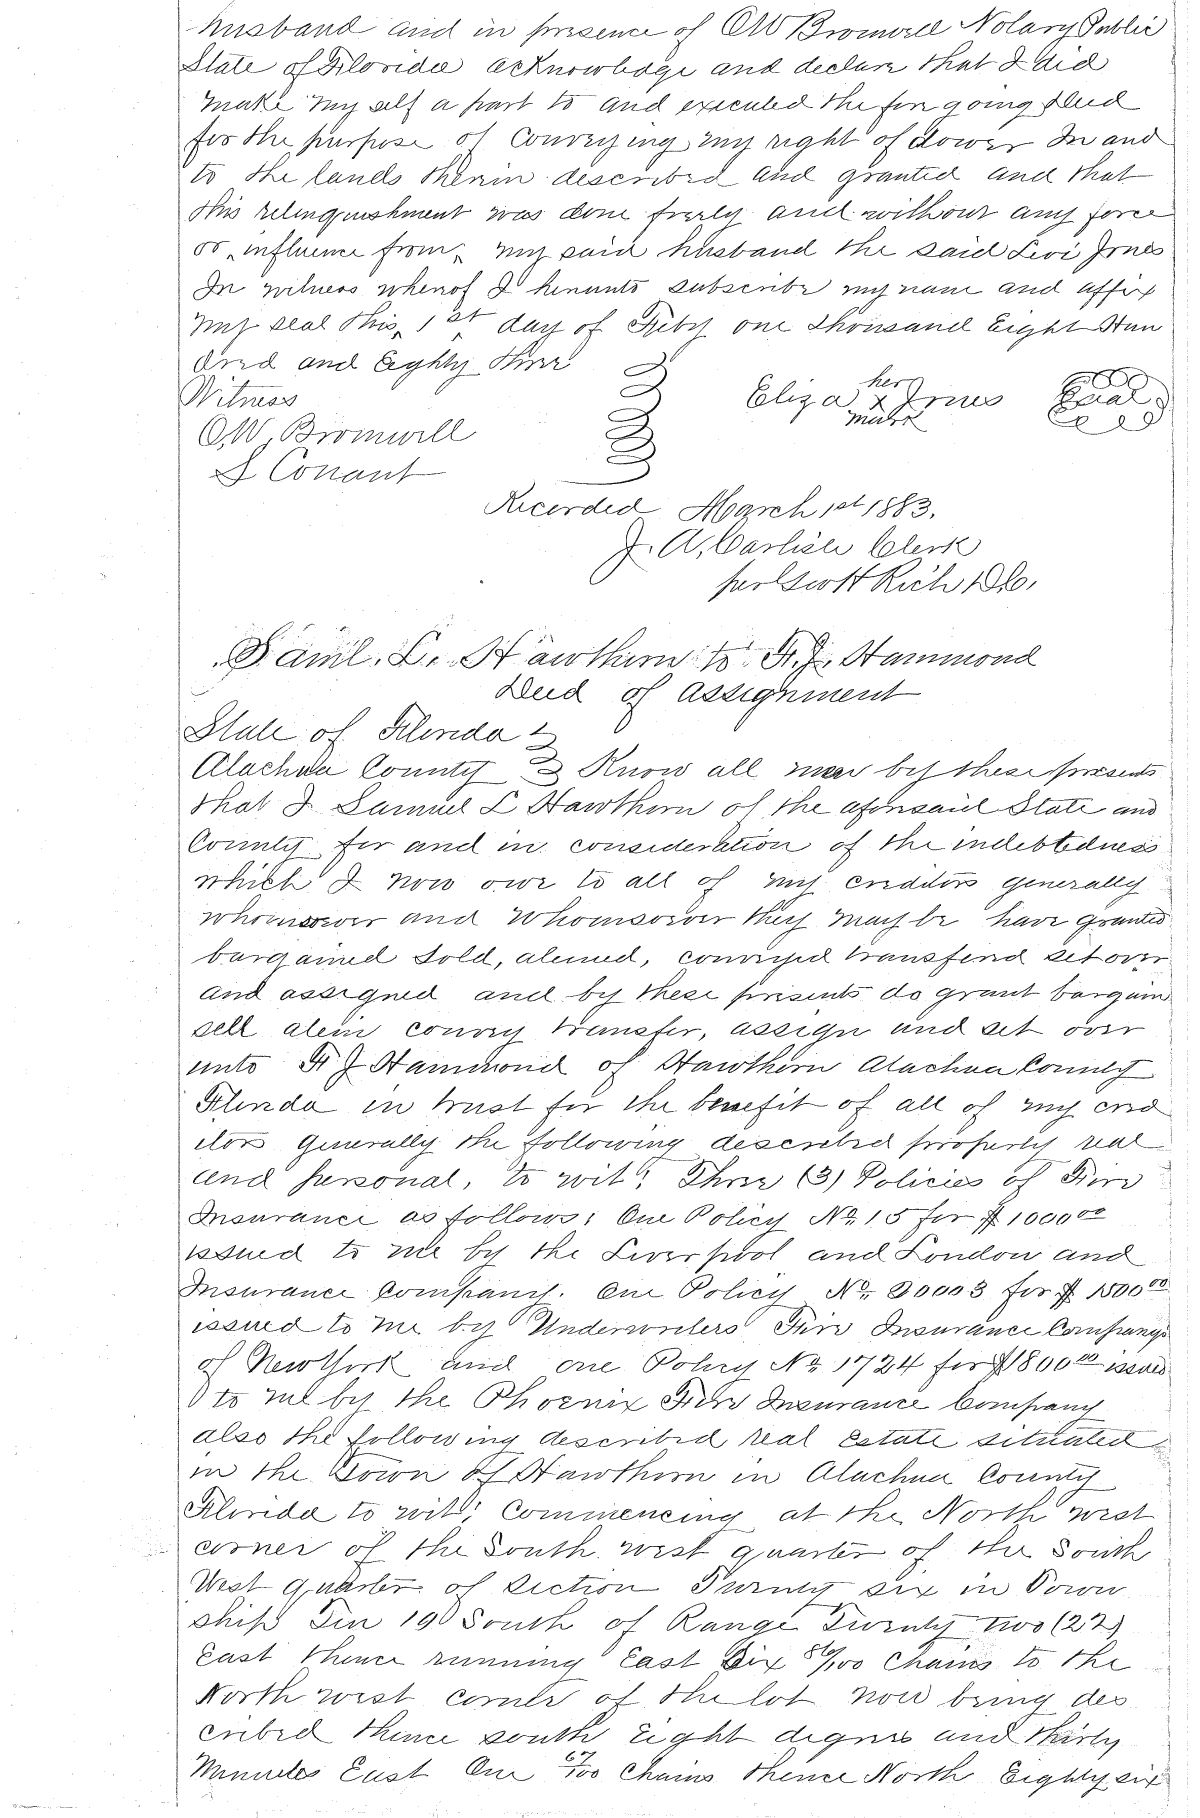 husband and in presence of O W Bromwell Notary Public
State of Florida acknowledge and declare that I did
make my self a part to and executed the foregoing deed
for the purpose of conveying my right of dower In and
to the lands therein described and granted and that
this relinquishment was done freely and without any force
or influence from my said husband the said Levi Jones
In witness whereof I hereunto subscribe my name and affix
my seal this 1st day of Feby one thousand Eight Hun
dred and Eighty Three
Witness
O, W, Bromwell
S Conant
her
Eliza x Jones Seal
mark
Recorded March 1st 1883.
J. A. Carlisle Clerk
per Scott Rich D.C.
Saml. L. Hawthorn to F. J. Hammond
Deed of Assignment
State of Florida
Alachua County Know all men by these presents
that I Samuel L Hawthorn of the aforesaid State and
County for and in consideration of the indebtedness
which I now owe to all of my creditors generally
whomsoever and whomsoever they may be have granted
bargained sold, aliened, conveyed transferd set over
and assigned and by these presents do grant bargain
sell alein convey transfer, assign and set over
unto F J Hammond of Hawthorn Alachua County
Florida in trust for the benefit of all of my cred
itors Generally the following described property real
and personal, to wit: Three (3) Policies of Fire
Insurance as follows: One Policy No. 15 for $ 1000.00
issued to me by the Liverpool and London and
Insurance Company. One Policy No. 30003 for $ 1500.00
issued to me by Underwriters Fire Insurance Company
of New York and one Policy No 1724 for $1800.00 issued
to me by the Phoenix Fire Insurance Company
also the following described real Estate situated
in the Town of Hawthorn in Alachua County
Florida to wit: Commencing at the North west
corner of the South west quarter of the South
West quarter of Section Twenty six in Town
ship Ten 10 South of Range Twenty two (22)
East thence running East Six /100 Chains to the
North west corner of the lot now being des
cribed thence south Eight degrees and thirty
Minutes East One 67/100 Chains thence North Eighty six